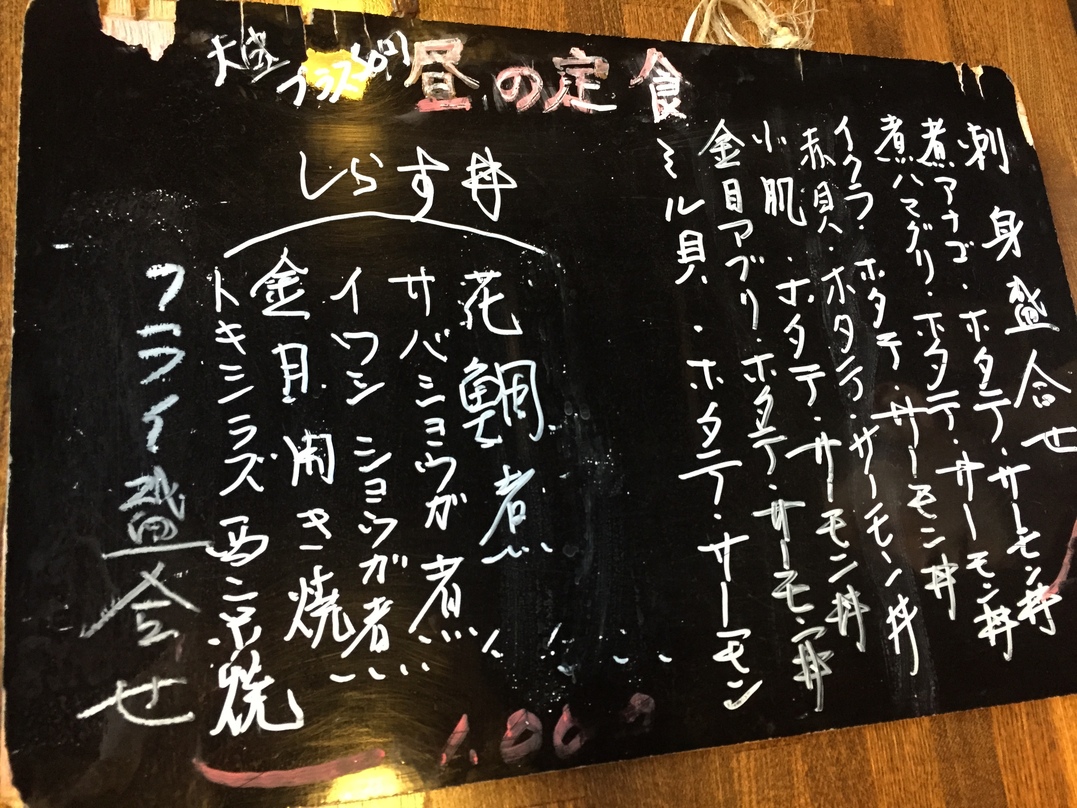 昼の定食
大盛
プラス
刺身盛合せ
煮アナゴ・ホタテ・サーモン丼
煮ハマグリ・ホタテ・サーモン丼
イクラ・ホタテ・サーモン丼
赤貝・ホタテ・サーモン丼
小肌・ホタテ・サーモン丼
金目アブリ・ホタテ・サーモン丼
ミル貝・ホタテ・サーモン
しらす丼
花鯛煮
サバショウガ煮
イワシショウガ煮
金目開き焼
トキシラズ西京焼
フライ盛合せ